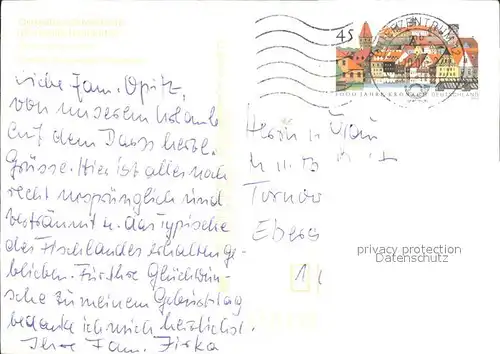 Liebe Fam. Opitz,
von unserem Urlaub
auf dem Darss herzl.
Grüsse. Hier ist alles noch
recht ursprünglich und
verträumt u. das typische
des Fischlandes erhalten ge-
blieben. Für Ihre Glückwün-
sche zu meinem Geburtstag
bedanke ich mich herzlichst.
Ihre Fam. Zirka
45
BRIEFZENTRUM
1000 JAHRE KRONACH DEUTSCHLAND
Herrn u. Frau
Turnow
Ebers
privacy protection
Datenschutz
1